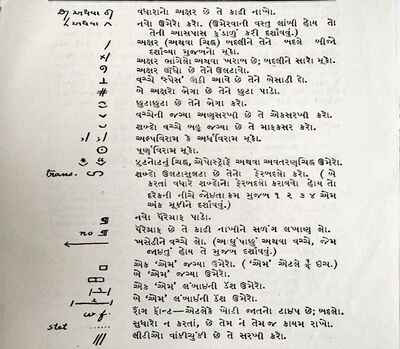 વધારાનો અક્ષર છે તે કાઢી નાખો.
નવો ઉમેરો કરો. (ઉમેરવાની વસ્તુ લાંબી હોય તો
તેની આસપાસ કુંડાળું કરી દર્શાવવું.)
અક્ષર (અથવા ચિહ્ન) બદલીને તેને બદલે બીજો
દર્શાવ્યા મુજબનો મૂકો.
અક્ષર ભાંગેલો અથવા ખરાબ છે; બદલીને સારો મૂકો.
અક્ષર ઊંધો છે તેને ઉલટાવો.
વચ્ચે 'સ્પેસ' ઉઠી આવે છે તેને બેસાડી દો.
# બે અક્ષરો ભેગા છે તેને છુટા પાડો.
છુટાછુટા છે તેને ભેગા કરો.
વચ્ચેની જગ્યા અણસરખી છે તે એકસરખી કરો.
શબ્દો વચ્ચે બહુ જગ્યા છે તે માફકસર કરો.
અલ્પવિરામ કે અર્ધવિરામ મૂકો.
પૂર્ણવિરામ મૂકો.
ફુટનોટનું ચિહ્ન, એપોસ્ટ્રોફે અથવા અવતરણચિહ્ન ઉમેરો.
trans. શબ્દો ઉલટાસુલટા છે તેનો ફેરબદલો કરો. (બે
કરતાં વધારે શબ્દોનો ફેરબદલો કરાવવો હોય તો
દરેકની નીચે જોઇતા ક્રમ મુજબ ૧ ૨ ૩ ૪ એમ
અંક મૂકીને દર્શાવવું.)
નવો પૅરેગ્રાફ પાડો.
no ¶ પૅરેગ્રાફ છે તે કાઢી નાખીને સળંગ લખાણ લો.
ખસેડીને વચ્ચે લો. (આઘુંપાછું અથવા વચ્ચે, જેમ
જોઇતું હોય તે મુજબ દર્શાવવું.)
એક 'એમ' જગ્યા ઉમેરો. ('એમ' એટલે ઇંચ.)
બે 'એમ' જગ્યા ઉમેરો.
એક 'એમ' લંબાઈની ડૅશ ઉમેરો.
બે 'એમ' લંબાઈની ડૅશ ઉમેરો.
w f રૉંગ ફૉન્ટ—એટલેકે ખોટી જાતનો ટાઇપ છે; બદલો.
stet સુધારો ન કરતાં, છે તેમ ને તેમ જ કાયમ રાખો.
/// લીટીઓ વાંકીચૂંકી છે તે સરખી કરો.